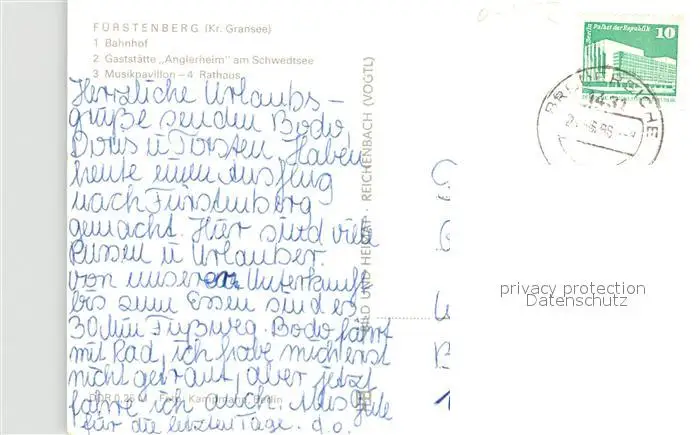 FÜRSTENBERG (Kr. Gransee)
1 Bahnhof
2 Gaststätte „Anglerheim" am Schwedtsee
3 Musikpavillon – 4 Rathaus
Herzliche Urlaubs–
grüße senden Bodo,
Doris u Torsten. Haben
heute einen Ausflug
nach Fürstenberg
gemacht. Hier sind viele
Russen u Urlauber.
von unserer Unterkunft
bis zum Essen sind es
30 Min Fußweg. Bodo fährt
mit Rad, ich habe mich erst
nicht getraut, aber jetzt
fahre ich auch. Alles Gute
für die letzten Tage. d.o.
DDR 0,25 M Foto: Kampmann, Berlin
BILD UND HEIMAT REICHENBACH (VOGTL)
Berlin Palast der Republik
10
DDR
BREDEREICHE
1431
privacy protection
Datenschutz